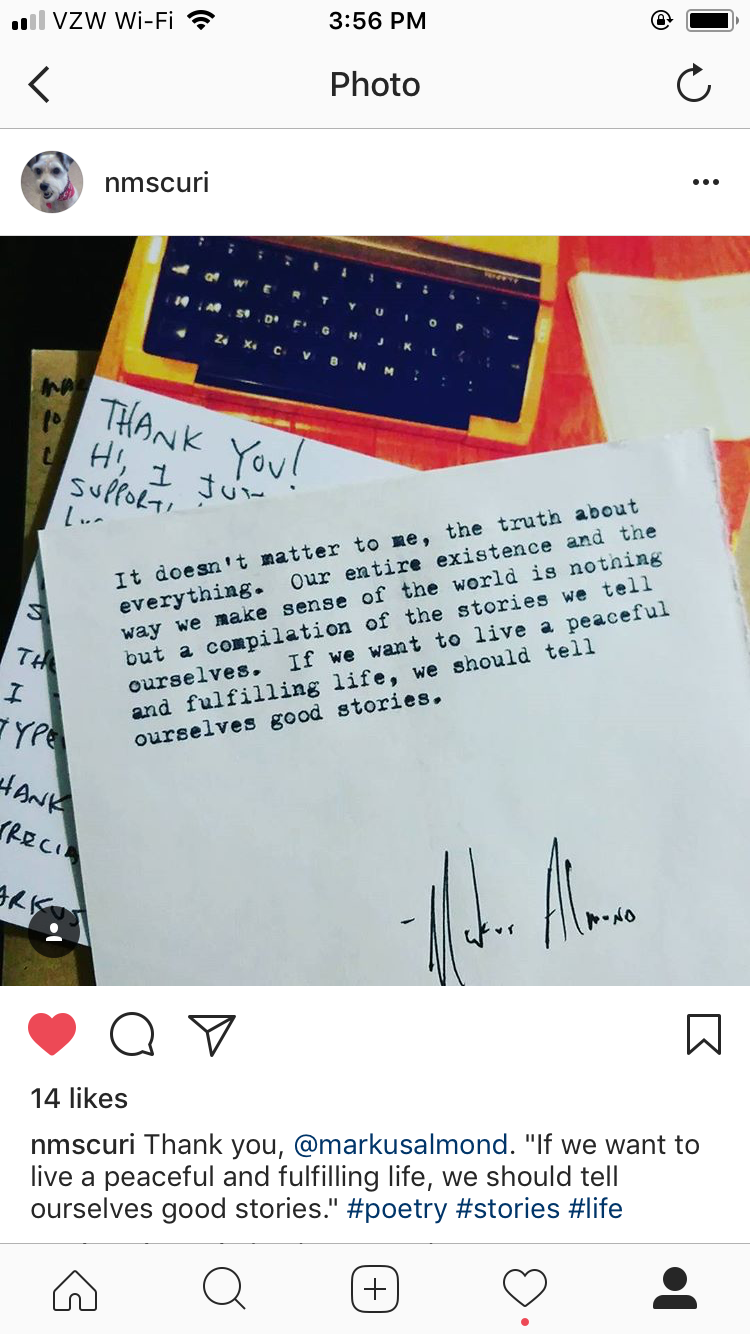 VZW Wi-Fi
3:56 PM
Photo
nmscuri
Q W E R T Y U I O P
A S D F G H J K L
Z X C V B N M
THANK YOU!
HI, I
SUPPORT
I
It doesn't matter to me, the truth about
everything. Our entire existence and the
way we make sense of the world is nothing
but a compilation of the stories we tell
ourselves. If we want to live a peaceful
and fulfilling life, we should tell
ourselves good stories.
- Markus Almond
14 likes
nmscuri Thank you, @markusalmond. "If we want to
live a peaceful and fulfilling life, we should tell
ourselves good stories." #poetry #stories #life